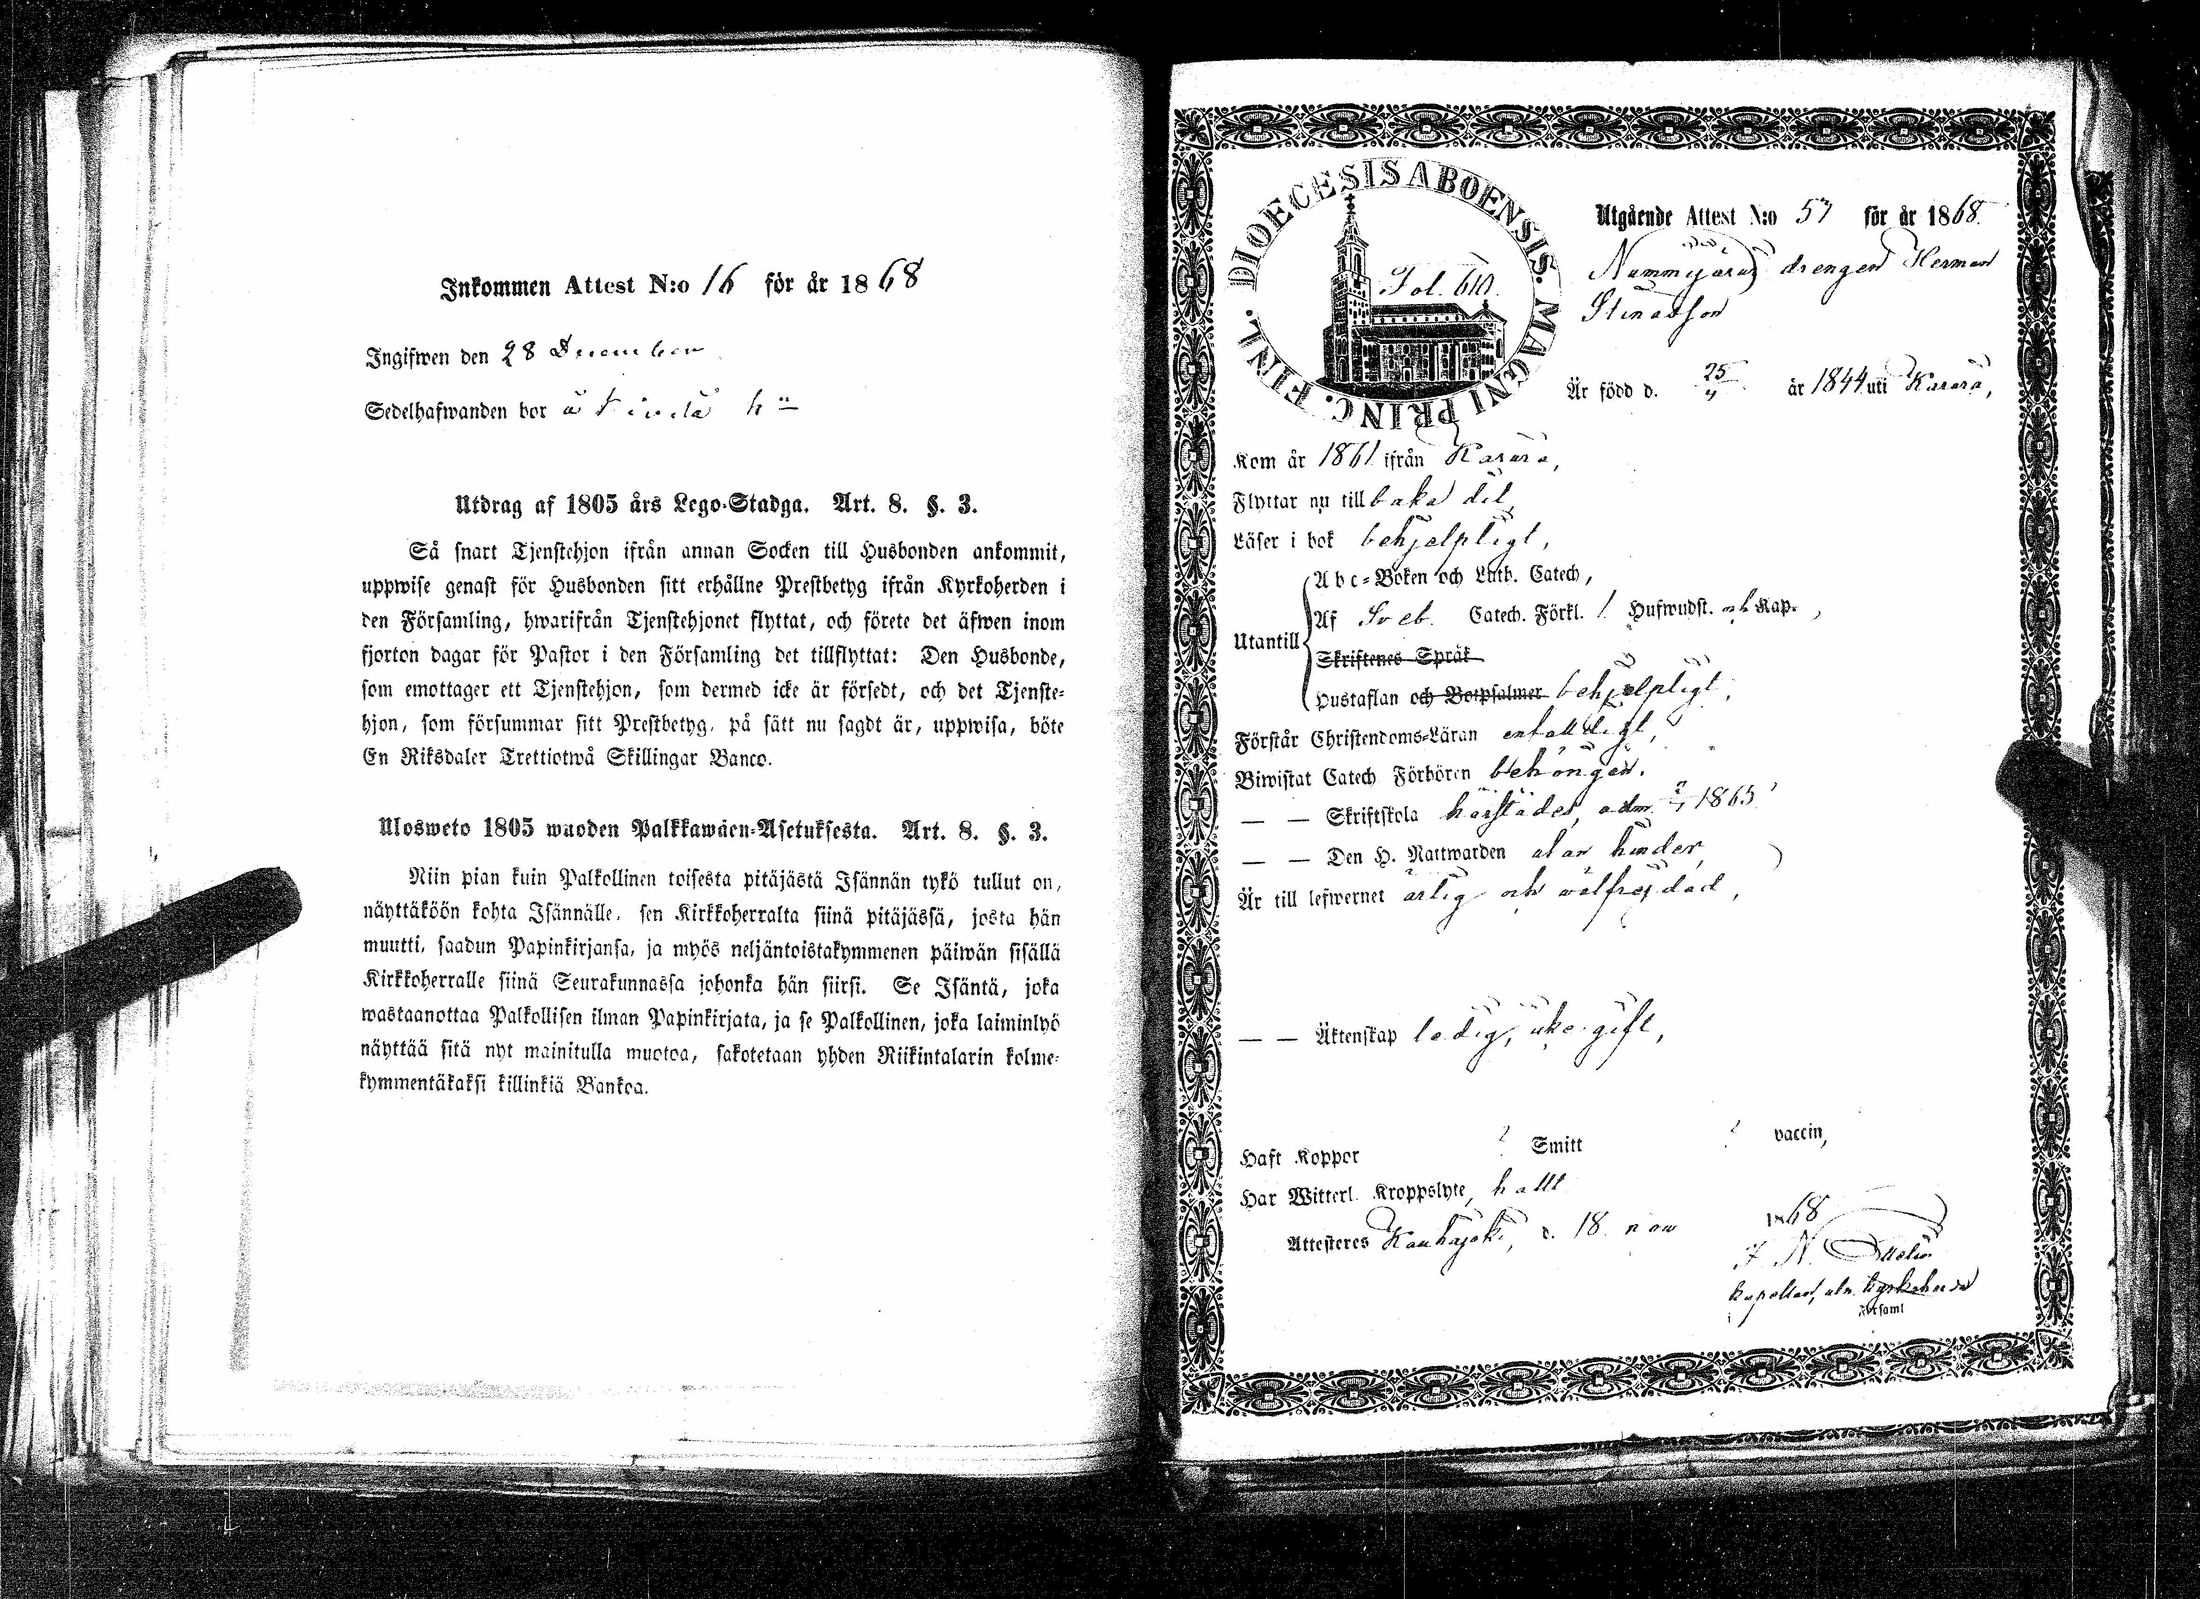 Inkommen Attest N:o 16 för år 1868
Ingifwen den 28 December
Sedelhafwanden bor å
Utdrag af 1805 års Lego-Stadga. Art. 8. §. 3.
Så snart Tjenstehjon ifrån annan Socken till Husbonden ankommit,
uppwise genast för Husbonden sitt erhållne Prestbetyg ifrån Kyrkoherden i
den Församling, hwarifrån Tjenstehjonet flyttat, och förete det äfwen inom
fjorton dagar för Pastor i den Församling det tillflyttat: Den Husbonde,
som emottager ett Tjenstehjon, som dermed icke är försedt, och det Tjenste-
hjon, som försummar sitt Prestbetyg, på sätt nu sagdt är, uppwisa, böte
En Riksdaler Trettiotwå Skillingar Banco.
Ulosweto 1805 wuoden Palkkawäen-Asetuksesta. Art. 8. §. 3.
Niin pian kuin Palkollinen toisesta pitäjästä Isännän tykö tullut on,
näyttäköön kohta Isännälle, sen Kirkkoherralta siinä pitäjässä, josta hän
muutti, saadun Papinkirjansa, ja myös neljäntoistakymmenen päiwän sisällä
Kirkkoherralle siinä Seurakunnassa johonka hän siirsi. Se Isäntä, joka
wastaanottaa Palkollisen ilman Papinkirjata, ja se Palkollinen, joka laiminlyö
näyttää sitä nyt mainitulla muotoa, sakotetaan yhden Riikintalarin kolme-
kymmentäkaksi killinkiä Bankoa.
DIOECESIS ABOENSIS. MAGNI PRINC. FINL.
Fol. 610.
Utgående Attest N:o 57 för år 1868.
drengen Herman
Är född d. 25 år 1844 uti
Kom år 1861 ifrån
Flyttar nu till baka dit
Läser i bok behjelpligt,
Abc-Boken och Luth. Catech,
Af Sveb. Catech. Förkl. 1 Hufwudst. och Kap.,
Utantill
Skriftenes Språk
Hustaflan och Botpsalmer behjelpligt,
Förstår Christendoms-Läran enfaldigt,
Biwistat Catech Förhören behörigen.
— — Skriftskola härstädes, adm. 1865
— — Den H. Nattwarden utan hinder,
Är till lefwernet ärlig och wälfrejdad,
— — Äktenskap ledig, icke gift,
Haft Koppor ? Smitt ? vaccin,
Har Witterl. Kroppslyte, halt
Attesteres Kauhajoki, d. 18 nov 1868
kapellan, kyrkoherde
Församl